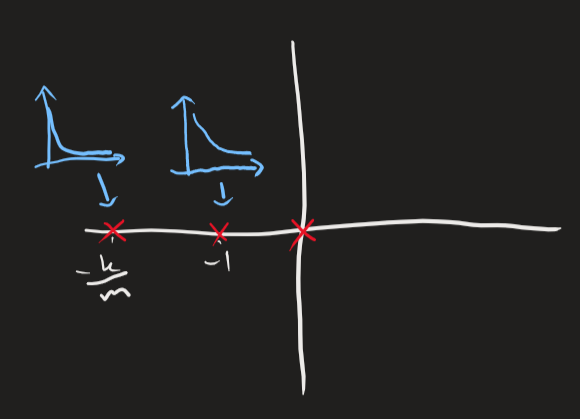 -k/m
-1